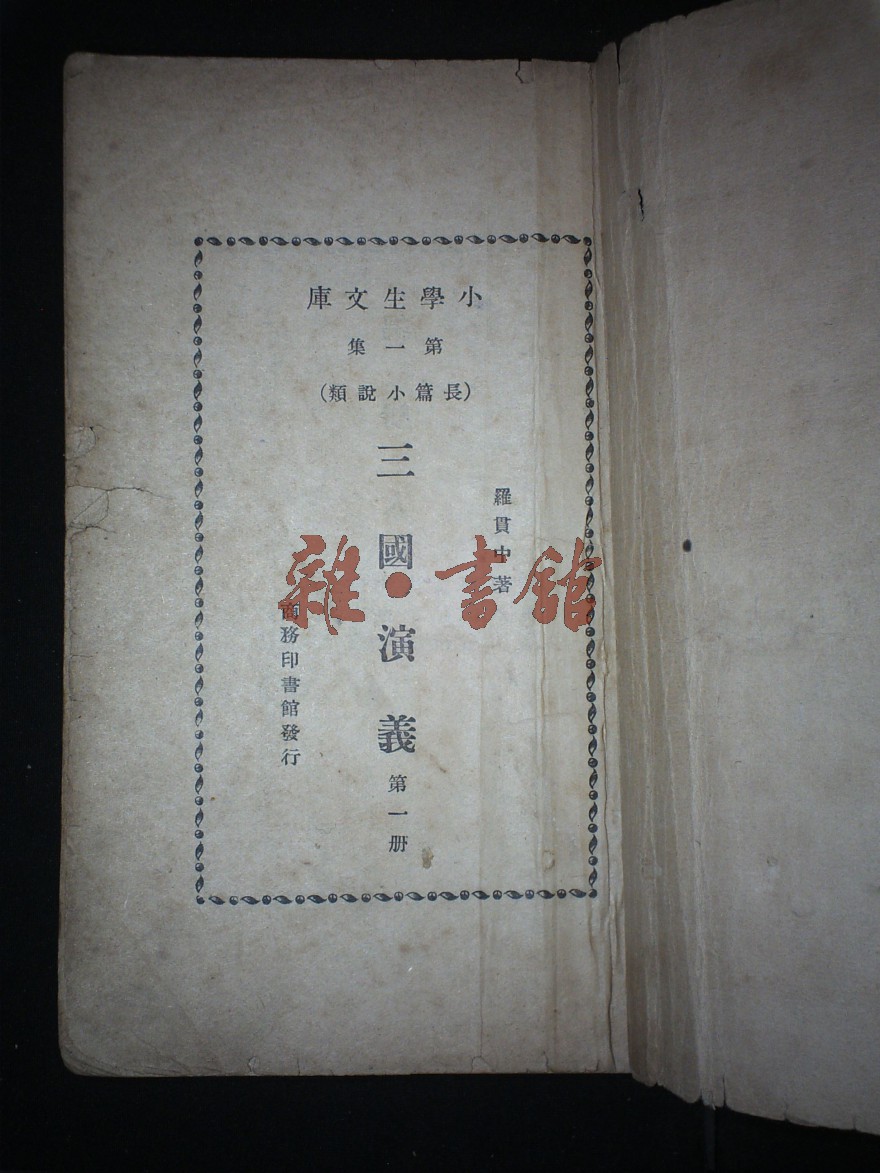 小學生文庫
第一集
（長篇小說類）
羅貫中著
三國演義 第一册
商務印書館發行
雜·書館